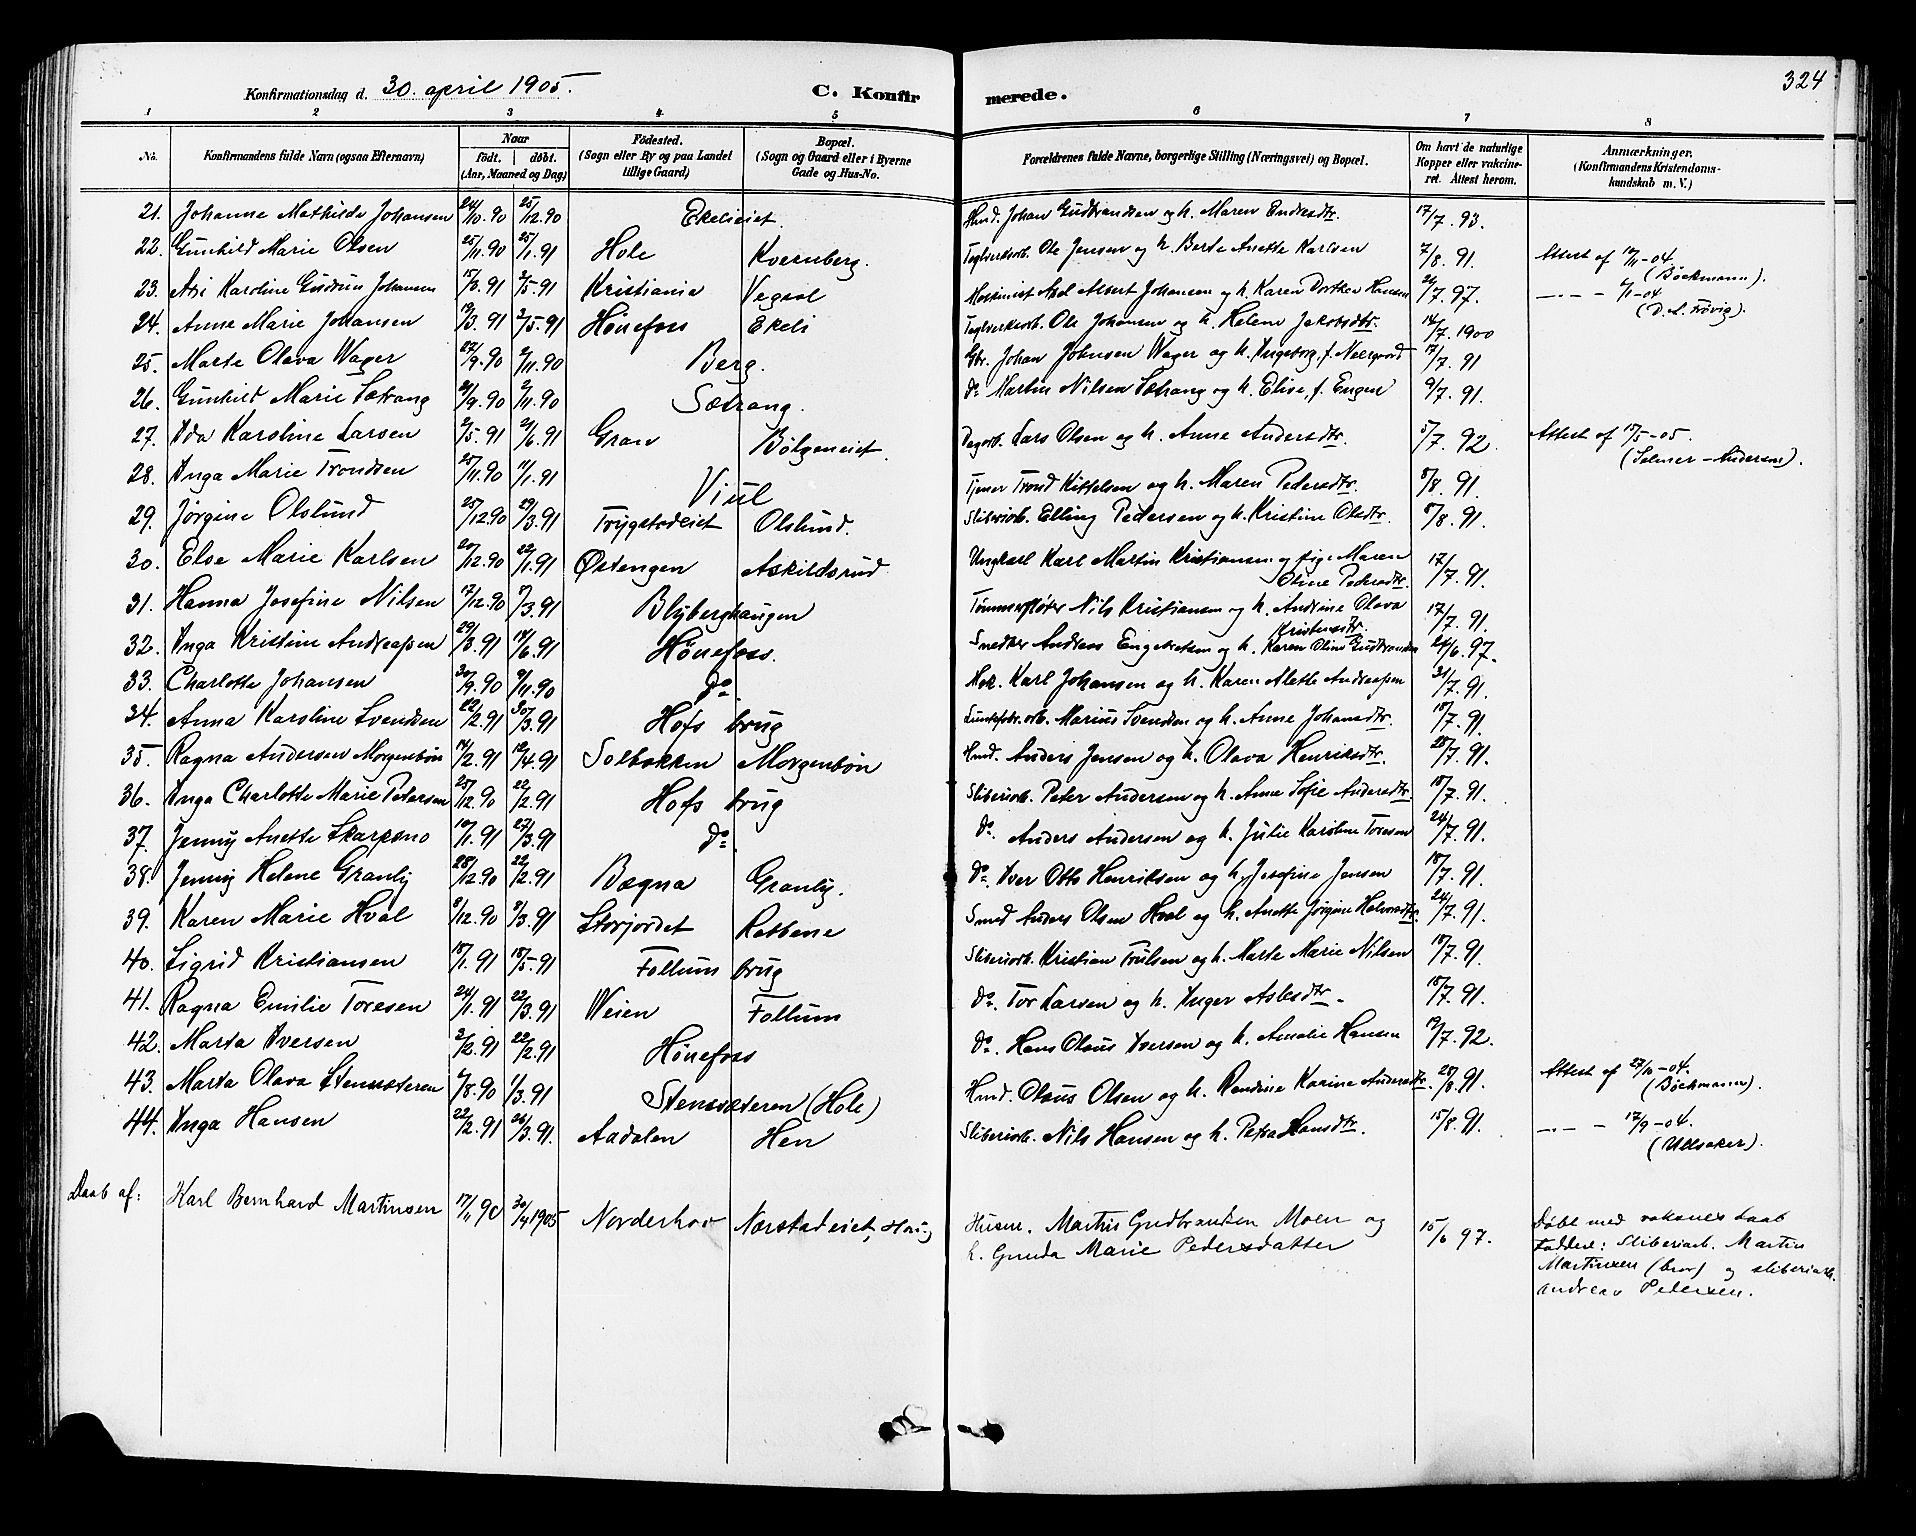 324
Konfirmationsdag d. 30. april 1905.
C. Konfirmerede.
1 2 3 4 5 6 7 8
No. Konfirmandens fulde Navn (ogsaa Efternavn) Naar født. døbt. (Aar, Maaned og Dag) Fødested. (Sogn eller By og paa Landet tillige Gaard) Bopæl. (Sogn og Gaard eller i Byerne Gade og Hus-No. Forældrenes fulde Navne, borgerlige Stilling (Næringsvei) og Bopæl. Om havt de naturlige Kopper eller vakcineret. Attest herom. Anmærkninger. (Konfirmandens Kristendomskundskab m. V.)
21. Johanne Mathilde Johansen 24/10.90 25/12.90 Ekelieiet. Hmd. Johan Gudbrandsen og h. Maren Endresdtr. 17/7.93.
22. Gunhild Marie Olsen 25/11.90 25/1.91 Hole Kvernberg. Teglverksarb. Ole Jensen og h. Berte Anette Karlsen 7/8.91. Attest af 12/11-04. (Bøckmann).
23. Asi Karoline Gudrun Johansen 15/3.91 2/5.91 Kristiania Vegsal Maskinist Axel Albert Johansen og h. Karen Dorthea Hansen 21/7.97. —·— - 6/1-04 (D. A. Frøvig).
24. Anne Marie Johansen 19/3.91 2/5.91 Hønefoss Ekeli Teglverksarb. Ole Johansen og h. Helene Jakobsdtr. 14/7.1900
25. Marte Olava Wager 27/9.90 2/11.90 Berg. Gbr. Johan Johnsen Wager og h. Ingeborg, f. Neergaard 17/7.91
26. Gunhild Marie Sætrang 21/9.90 2/11.90 Sætrang. do Martin Nilsen Sætrang og h. Elise, f. Engen 9/7.91.
27. Ida Karoline Larsen 2/5.91 21/6.91 Gran Bølgeneiet. Dagarb. Lars Olsen og h. Anne Andersdtr. 5/7.92. Attest af 15/5-05. (Selmer-Andersen).
28. Inga Marie Trondsen 25/11.90 11/1.91 Viul Tjener Trond Kittelsen og h. Maren Pedersdtr. 8/8.91.
29. Jørgine Olslund 25/12.90 29/3.91 Trygstadeiet Olslund. Sliberiarb. Elling Pedersen og h. Kristine Olsdtr. 8/8.91.
30. Else Marie Karlsen 20/12.90 22/1.91 Østengen Askildsrud Ungkarl Karl Martin Kristiansen og pige Maren Oline Pedersdtr. 17/7.91.
31. Hanna Josefine Nilsen 17/12.90 8/3.91 Blyberghaugen Tømmerfløter Nils Kristiansen og h. Andrine Olava Kristensdtr. 17/7.91.
32. Inga Kristine Andreassen 29/3.91 14/6.91 Hønefoss. Snedker Andreas Engebretsen og h. Karen Oline Gudbrandsen 24/6.97.
33. Charlotte Johansen 30/9.90 9/11.90 do. Mek. Karl Johansen og h. Karen Alette Andreassen 31/7.91.
34. Anna Karoline Svendsen 22/2.91 30/3.91 Hofs brug Luntefabr.arb. Marius Svendsen og h. Anne Johansdtr. 18/7.91.
35. Ragna Andersen Morgenbøn 14/2.91 12/4.91 Solbakken Morgenbøn Hmd. Anders Jensen og h. Olava Henriksdtr. 28/7.91.
36. Inga Charlotte Marie Petersen 25/12.90 22/2.91 Hofs brug Sliberiarb. Peter Andersen og h. Anne Sofie Andersdtr. 18/7.91.
37. Jenny Anette Skarpsno 10/1.91 27/3.91 do. do. Anders Andersen og h. Julie Karoline Toresen 24/7.91.
38. Jenny Helene Granly 28/12.90 22/2.91 Bægna Granly. do. Iver Otto Henriksen og h. Josefine Jensen 18/7.91.
39. Karen Marie Hval 8/12.90 8/3.91 Storjordet Ratbene Smed Anders Olsen Hval og h. Anette Jørgine Halvorsdtr. 24/7.91.
40. Sigrid Kristiansen 18/1.91 18/5.91 Follum brug Sliberiarb. Kristian Trulsen og h. Marte Marie Nilsen 18/7.91.
41. Ragna Emilie Toresen 24/1.91 22/3.91 Weien Follum do. Tor Larsen og h. Inger Aslesdtr. 18/7.91.
42. Marta Iversen 2/2.91 22/2.91 Hønefoss do. Hans Olaus Iversen og h. Amalie Hansen 19/7.92.
43. Marta Olava Stensæteren 4/8.90 1/3.91 Stensæteren (Hole) Hmd. Olaus Olsen og h. Randine Karine Andersdtr. 28/8.91. Attest af 27/10-04. (Bøckmann).
44. Inga Hansen 22/2.91 26/3.91. Aadalen Hen Sliberiarb. Nils Hansen og h. Petra Hansdtr. 15/8.91. —·— - 17/9-04. (Ullsaker).
Daab af: Karl Bernhard Martinsen 17/11 90 30/4 1905 Norderhov Nærstadeiet, Haug Husm. Martin Gudbrandsen Moen og
h. Gunda Marie Pedersdatter 15/6 97. Døbt med voksnes daab
Faddere: Sliberiarb. Martin
Martinsen (bror) og sliberiarb.
Andreas Petersen.